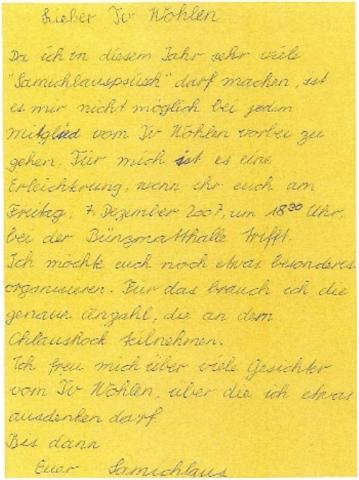 Lieber Tv Wohlen
Da ich in diesem Jahr sehr viele
"Samichlauspsüech" darf machen, ist
es mir nicht möglich bei jedem
mitglied vom Tv Wohlen vorbei zu
gehen. Für mich ist es eine
Erleichterung, wenn ihr euch am
Freitag, 7. Dezember 2007, um 18.30 Uhr,
bei der Bünzmatthalle trifft.
Ich möchte euch noch etwas besonderes
organisieren. Für das brauch ich die
genaue Anzahl, die an dem
Chlaushock teilnehmen.
Ich freu mich über viele Gesichter
vom Tv Wohlen, über die ich etwas
ausdenken darf.
Bis dann
Euer Samichlaus